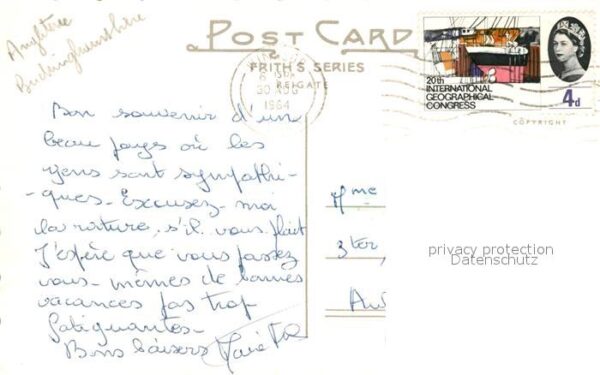 Angleterre
Buckinghamshire
POST CARD
FRITH'S SERIES
REIGATE
30 AUG
1964
20th
INTERNATIONAL
GEOGRAPHICAL
CONGRESS
4d
COPYRIGHT
Bon souvenir d'un
beau pays où les
gens sont sympathi-
-ques. Excusez-moi
la voiture, s'il vous plaît
J'espère que vous passez
vous-mêmes de bonnes
vacances pas trop
fatiguantes.
Bons baisers
Mme
3ter
privacy protection
Datenschutz